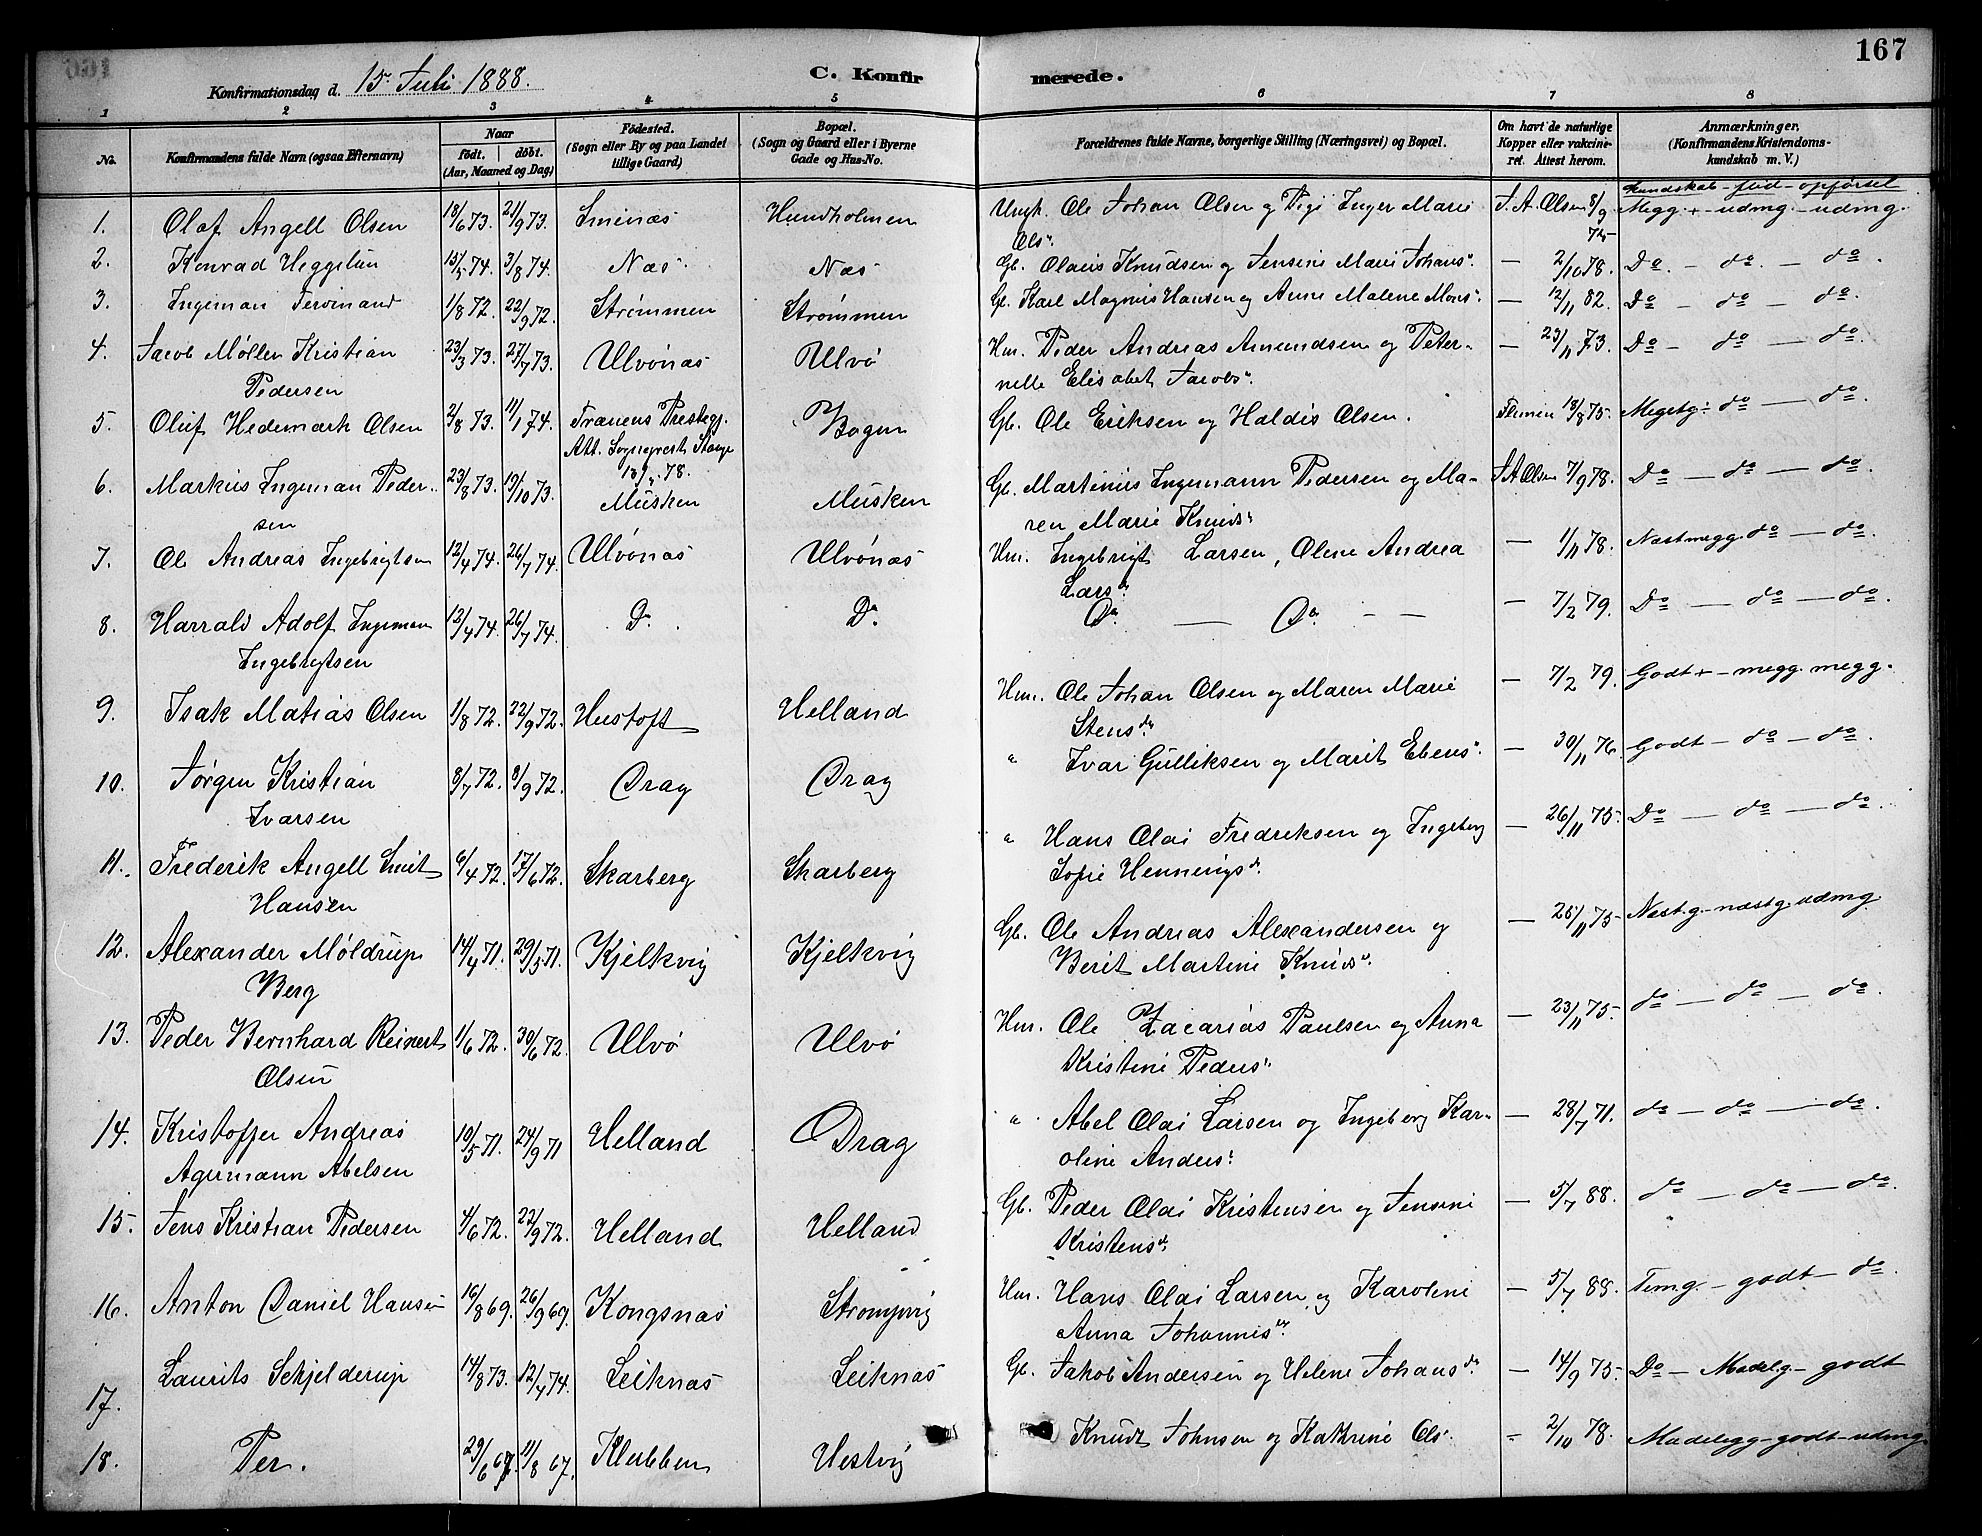 167
Konfirmationsdag d. 15 Juli 1888. C. Konfirmerede.
1 2 3 4 5 6 7 8
No. Konfirmandens fulde Navn (ogsaa Efternavn) Naar født. døbt. (Aar, Maaned og Dag) Fødested. (Sogn eller By og paa Landet tillige Gaard) Bopæl. (Sogn og Gaard eller i Byerne Gade og Hus-No. Forældrenes fulde Navne, borgerlige Stilling (Næringsvei) og Bopæl. Om havt de naturlige Kopper eller vakcineret. Attest herom. Anmærkninger. (Konfirmandens Kristendomskundskab m. V.)
Kundskab - flid - opførsel
1. Olaf Angell Olsen 18/6 73. 21/9 73. Hundholmen Ungk. Ole Johan Olsen og Pige Inger Marie Ols. J. A. Olsen 8/9 Megg + - udmg. - udmg.
2. Konrad Heggelun 15/5 74. 3/8 74. Næs Næs Gb. Olaus Knudsen og Jensine Marie Johans. — 2/10 78. Do - do - do.
3. Ingeman Ferdinand 1/8 72. 22/9 72. Strømmen Strømmen Gb. Karl Magnus Hansen og Anne Malene Mons. — 12/11 82. Do - do - do.
4. Jacob Møller Kristian 23/3 73. 27/7 73. Ulvönæs Ulvö Hm. Peder Andreas Amundsen og Peter-
Pedersen nelle Elisabet Jacobs. — 23/11 73. Do - do - do.
5. Oluf Hedemark Olsen 2/8 73. 11/1 74. Tranens Prestegj. Bogen Gb. Ole Eriksen og Haldis Olsen. 18/8 75. Megetg - do - do.
Att. Sogneprest Stange
78.
6. Markus Ingeman Peder- 23/8 73. 19/10 73. Musken Musken Gb. Martinus Ingemann Pedersen og Ma- J A Olsen 7/9 78. Do - do - do.
sen ren Marie Knuds.
7. Ole Andreas Ingebrigtsen 12/4 74. 26/7 74. Ulvönæs Ulvönæs Hm. Ingebrigt Larsen, Olene Andrea — 1/11 78. Næstmegg. do - do.
Lars.
8. Harrald Adolf Ingeman 12/4 74. 26/7 74. Do. Do. Do. — Do. — — — 7/2 79. Do - do - do.
Ingebrigtsen
9. Isak Matias Olsen 1/8 72. 22/9 72. Hustoft Helland Hm. Ole Johan Olsen og Maren Marie — 7/2 79. Godt + - megg. megg.
Stensdr.
10. Jørgen Kristian 8/7 72. 8/9 72. Drag Drag " Ivar Gulliksen og Marit Ebens. — 30/11 76. Godt - do - do.
Ivarsen
11. Frederik Angell Smit 6/4 72. 17/6 72. Skarberg Skarberg " Hans Olai Fredriksen og Ingeberg — 26/11 75. Do - do - do.
Hansen Sofie Henningsdr.
12. Alexander Møldrup 14/4 71. 29/5 71. Kjelkvig Kjelkvig Gb. Ole Andreas Alexandersen og — 25/11 75 Næst.g. - næstg. udmg.
Berg Berit Martine Knuds.
13. Peder Bernhard Reinert 1/6 72. 30/6 72. Ulvö Ulvö Hm. Ole Zacarias Paulsen og Anna — 23/11 75. do - do - do.
Olsen Kristine Peders.
14. Kristoffer Andreas 10/5 71. 24/9 71 Helland Drag " Abel Olai Larsen og Ingeborg Kar- — 28/7 71. do - do - do.
Agermann Abelsen oline Anders.
15. Jens Kristian Pedersen 4/6 72. 22/9 72. Helland Helland Gb. Peder Olai Kristensen og Jensine — 5/7 88. do - do - do.
Kristensdr.
16. Anton Daniel Hansen 16/8 69. 26/9 69. Kongsnæs Hm. Hans Olai Larsen og Karoline — 5/7 88. Temg. - godt - do.
Anna Johannisdr.
17. Laurits Schjelderup 14/8 73. 12/4 74. Leiknæs Leiknæs Gb. Jakob Andersen og Helene Johansdr — 14/9 75. Do - Madelg - godt
18. Per. 29/6 67. 11/8 67. Klubben Hestvig Knudt Johnsen og Kathrine Ols. - 2/10 78. Madelegg - godt - udmg.